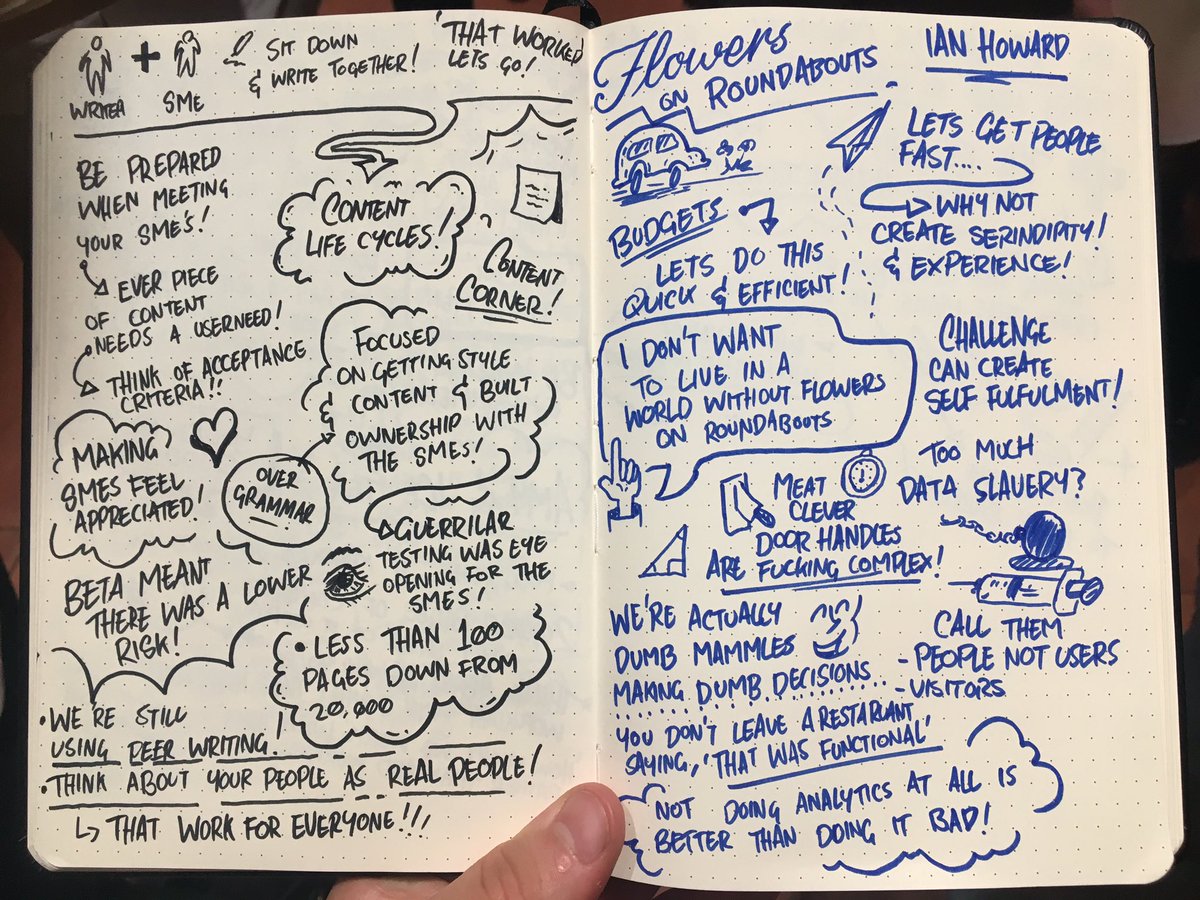 WRITER
SME
SIT DOWN
& WRITE TOGETHER!
'THAT WORKED
LETS GO!
BE PREPARED
WHEN MEETING
YOUR SME'S!
EVER PIECE
OF CONTENT
NEEDS A USERNEED!
THINK OF ACCEPTANCE
CRITERIA!!
CONTENT
LIFE CYCLES!
CONTENT
CORNER!
FOCUSED
ON GETTING STYLE
CONTENT & BUILT
& OWNERSHIP WITH
THE SMES!
MAKING
SMES FEEL
APPRECIATED!
OVER
GRAMMAR
GUERRILAR
TESTING WAS EYE
OPENING FOR THE
SMES!
BETA MEANT
THERE WAS A LOWER
RISK!
• LESS THAN 100
PAGES DOWN FROM
20,000
• WE'RE STILL
USING PEER WRITING!
• THINK ABOUT YOUR PEOPLE AS REAL PEOPLE!
THAT WORK FOR EVERYONE!!!
Flowers
ON ROUNDABOUTS
IAN HOWARD
LETS GET PEOPLE
FAST....
WHY NOT
CREATE SERINDIPITY!
& EXPERIENCE!
BUDGETS
LETS DO THIS
QUICK & EFFICIENT!
I DON'T WANT
TO LIVE IN A
WORLD WITHOUT FLOWERS
ON ROUNDABOUTS
CHALLENGE
CAN CREATE
SELF FULFULMENT!
TOO MUCH
DATA SLAVERY?
MEAT
CLEVER
DOOR HANDLES
ARE FUCKING COMPLEX!
WE'RE ACTUALLY
DUMB MAMMLES
MAKING DUMB DECISIONS
CALL THEM
- PEOPLE NOT USERS
- VISITORS
YOU DON'T LEAVE A RESTARANT
SAYING, 'THAT WAS FUNCTIONAL'
NOT DOING ANALYTICS AT ALL IS
BETTER THAN DOING IT BAD!